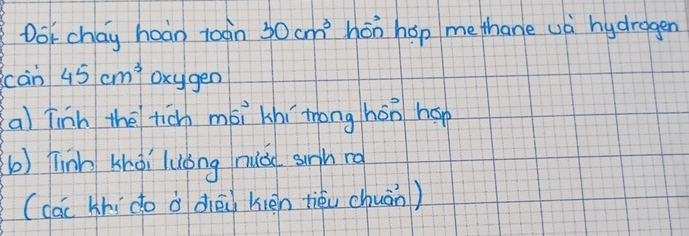 Đốt cháy hoàn toàn 30 cm³ hỗn hợp methane và hydrogen
cần 45 cm³ oxygen
a) Tính thể tích mỗi khí trong hỗn hợp
b) Tính khối lượng nước sinh ra
(các khí đo ở điều kiện tiêu chuẩn)